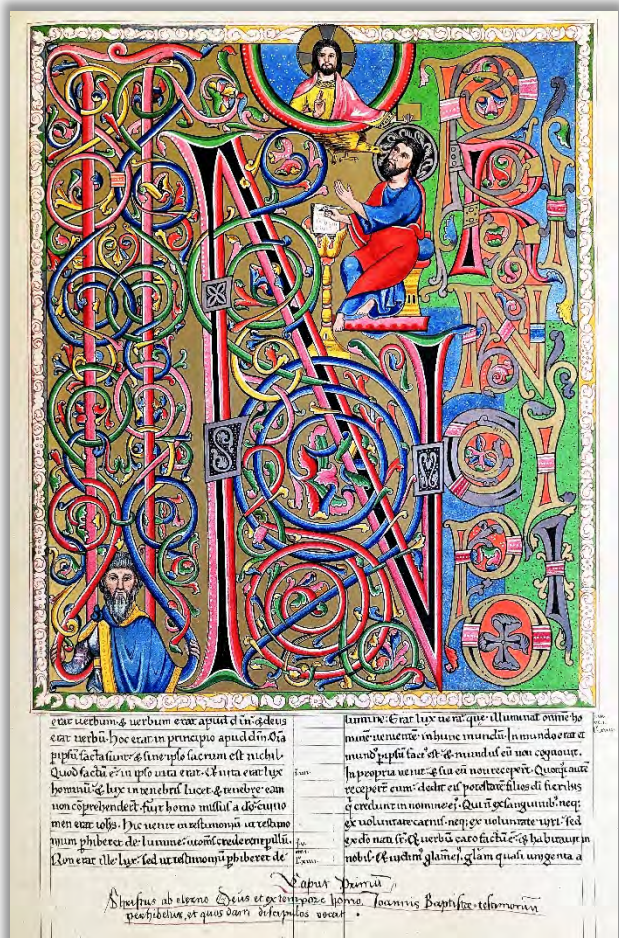 IN PRINCIPIO
erat uerbum. & uerbum erat apud dm. & deus
erat uerbū. Hoc erat in principio apud dm. Oia
p ipsū facta sunt. & sine ipso factum est nichil.
Quod factū ē in ipso uita erat. & uita erat lux
hominū. & lux in tenebris lucet & tenebre eam
non cōprehenderunt. fuit homo missus a do. cui no
men erat iohs. Hic uenit in testimoniū ut testimo
nium phiberet de lumine. ut oms crederent p illū.
Non erat ille lux. sed ut testimoniū phiberet de
lumine. Erat lux uera. que illuminat omne ho
mine uenientē in hunc mundū. In mundo erat &
mund' p ipsū fact' est. & mundus eū non cognouit.
In propria uenit. & sui eū non recepert. Quotq' autē
recepert eum. dedit eis potestatē filios di fieri. his
q' credunt in nomine ei'. Qui n̄ ex sanguinib'. neq;
ex uoluntate carnis. neq; ex uoluntate uiri. sed
ex do nati st. & uerbū caro factū ē. & habitauit in
nobis. & uidim' glam ei'. glam quasi unigenia a
Caput Primū
Christus ab eterno Deus et ex tempore homo, Joannis Baptistæ testimonium
perhibetur, et quosdam discipulos vocat.